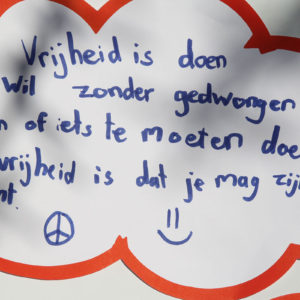 Vrijheid is doen
wil zonder gedwongen
of iets te moeten doe
vrijheid is dat je mag zij